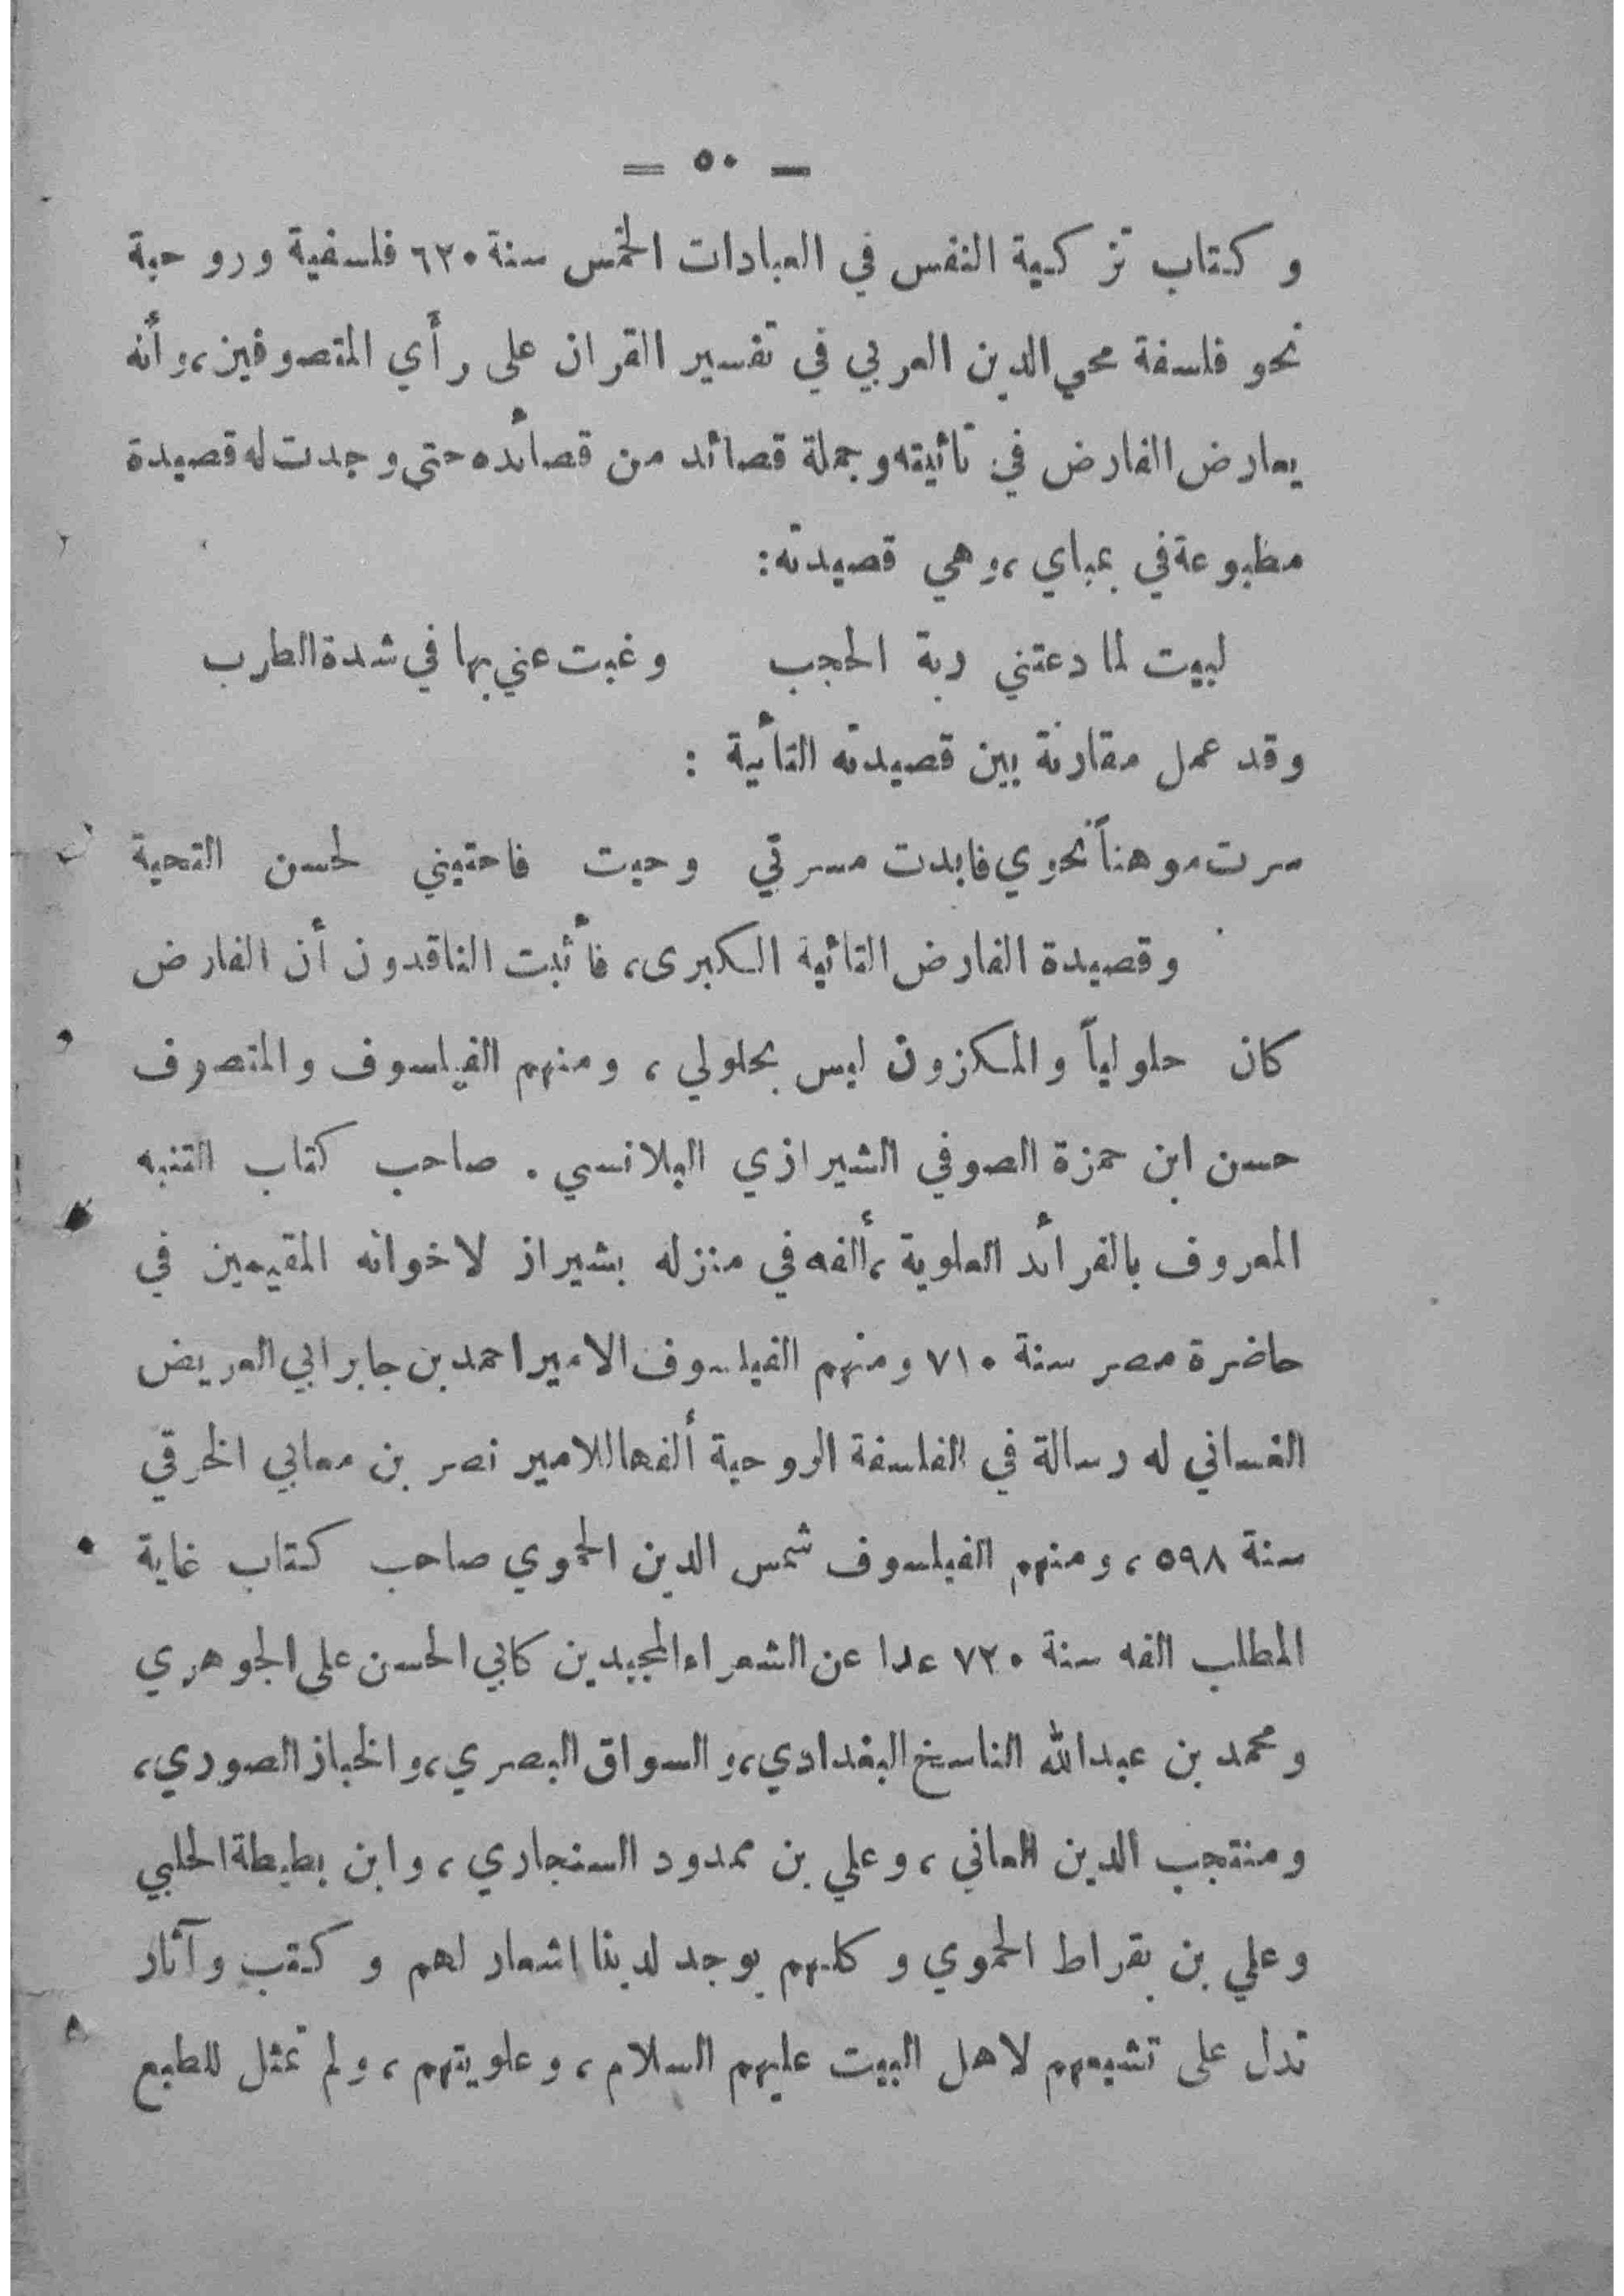 — ٥٠ =
و كتاب تزكية النفس في العبادات الخمس سنة ٦٢٠ فلسفية وروحية
نحو فلسفة محي الدين العربي في تفسير القران على رأي المتصوفين، وأنه
يعارض الفارض في تائيته وجملة قصائد من قصائده حتى وجدت له قصيدة
مطبوعة في بمباي، وهي قصيدته:
لبيت لما دعتني ربة الحجب وغبت عني بها في شدة الطرب
وقد عمل مقارنة بين قصيدته التأية :
سرت موهناً نحوي فابدت مسرتي وحيت فاحتيني لحسن التحية
وقصيدة الفارض التائية الكبرى، فأثبت الناقدون أن الفارض
كان حلولياً والمكزون ليس بحلولي، ومنهم الفيلسوف والمتصوف
حسن ابن حمزة الصوفي الشيرازي البلانسي. صاحب كتاب التنبه
المعروف بالفرأد العلوية، ألفه في منزله بشيراز لاخوانه المقيمين في
حاضرة مصر سنة ٧١٠ ومنهم الفيلسوف الامير احمد بن جابر ابي العريض
الغساني له رسالة في الفلسفة الروحية ألفها للامير نصر بن معابي الخرقي
سنة ٥٩٨، ومنهم الفيلسوف شمس الدين الحموي صاحب كتاب غاية
المطلب الفه سنة ٧٢٠ عدا عن الشعراء المجيدين كابي الحسن على الجوهري
ومحمد بن عبدالله الناسخ البغدادي، والسواق البصري، والخباز الصوري،
ومنتجب الدين العاني، وعلي بن ممدود السنجاري، وابن بطيطة الحلبي
وعلي بن بقراط الحموي وكلهم يوجد لدينا اشعار لهم وكتب وآثار
تدل على تشيعهم لاهل البيت عليهم السلام، وعلويتهم، ولم تمثل للطبع